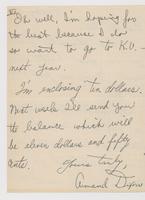 Oh well, I'm hoping for
the best because I do
so want to go to K.U.
next year.
I'm enclosing ten dollars.
Next week I'll send you
the balance which will
be eleven dollars and fifty
cents.
Yours truly,
Dixon